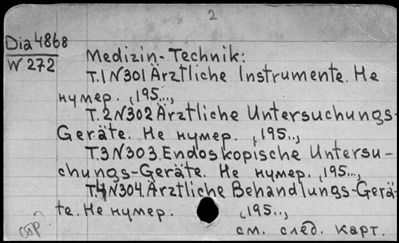 2
Dia 4868
W 272
Medizin-Technik:
T.1 N301 Ärztliche Instrumente. Не
нумер. ,195..,
T.2 N302 Ärztliche Untersuchungs-
Geräte. Не нумер. ,195..,
T.3 N303. Endoskopische Untersu-
chungs-Geräte. Не нумер. ,195..,
T.4 N304. Ärztliche Behandlungs-Gerä-
te. Не нумер. ,195..,
см. след. карт.